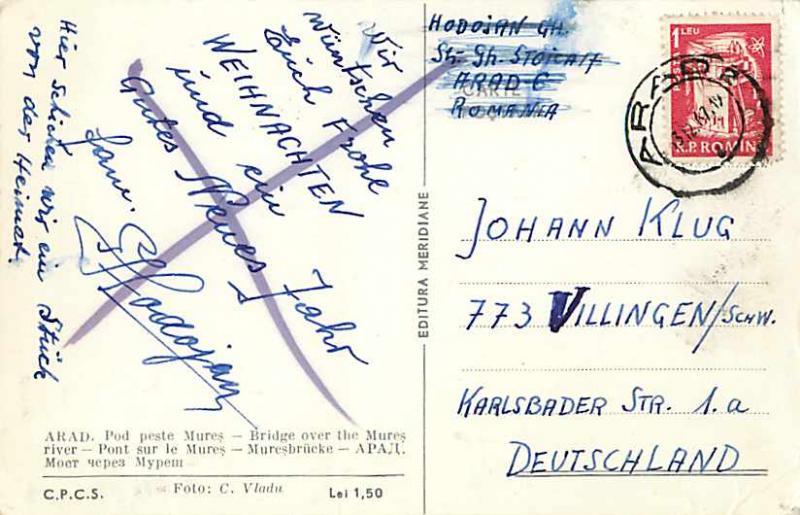 Hier schicken wir ein Stück
von der Heimat.
Wir
wüntschen
Euch Frohe
WEIHNACHTEN
und ein
Gutes Neues Jahr
Fam.
Hodojan
ARAD. Pod peste Mureş — Bridge over the Mureş
river — Pont sur le Mureş — Mureşbrücke — АРАД.
Мост через Муреш
C.P.C.S. Foto: C. Vladu Lei 1,50
EDITURA MERIDIANE
HODOJAN GH.
Str. Gh. STOICA
ARAD 6
CARTE
ROMANIA
1 LEU
R.P. ROMIN
ARAD
JOHANN KLUG
773 VILLINGEN/SCHW.
KARLSBADER STR. 1.a
DEUTSCHLAND